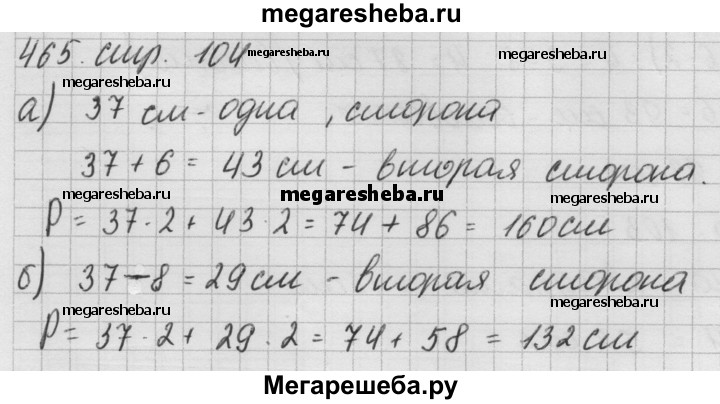 megaresheba.ru
465. стр. 104 megaresheba.ru
megaresheba.ru megaresheba.ru
а) 37 см - одна , сторона
37 + 6 = 43 см - вторая сторона.
megaresheba.ru megaresheba.ru megaresheba.ru
P = 37 · 2 + 43 · 2 = 74 + 86 = 160 см
б) 37 - 8 = 29 см - вторая сторона
megaresheba.ru megaresheba.ru
P = 37 · 2 + 29 · 2 = 74 + 58 = 132 см
Мегарешеба.ру